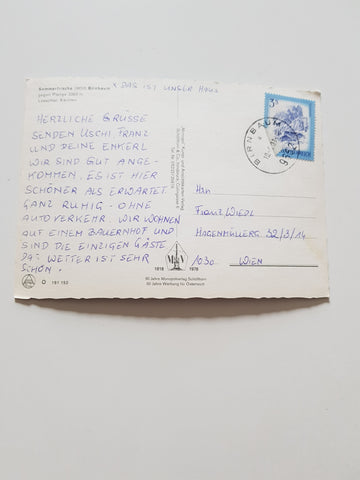 Sommerfrische (9652) Birnbaum
gegen Plenge 2369 m
Lesachtal, Kärnten
x DAS IST UNSER HAUS
HERZLICHE GRÜSSE
SENDEN USCHI, FRANZ
UND DEINE ENKERL
WIR SIND GUT ANGE-
KOMMEN. ES IST HIER
SCHÖNER ALS ERWARTET.
GANZ RUHIG - OHNE
AUTOVERKEHR. WIR WOHNEN
AUF EINEM BAUERNHOF UND
SIND DIE EINZIGEN GÄSTE
DA. WETTER IST SEHR
SCHÖN.
O 191 152
1918 1978
60 Jahre Monopolverlag Schöllhorn
60 Jahre Werbung für Österreich
3 S
BIRNBAUM
An
Franz WIEDL
HAGENMÜLLERG. 32/3/14
1030 WIEN